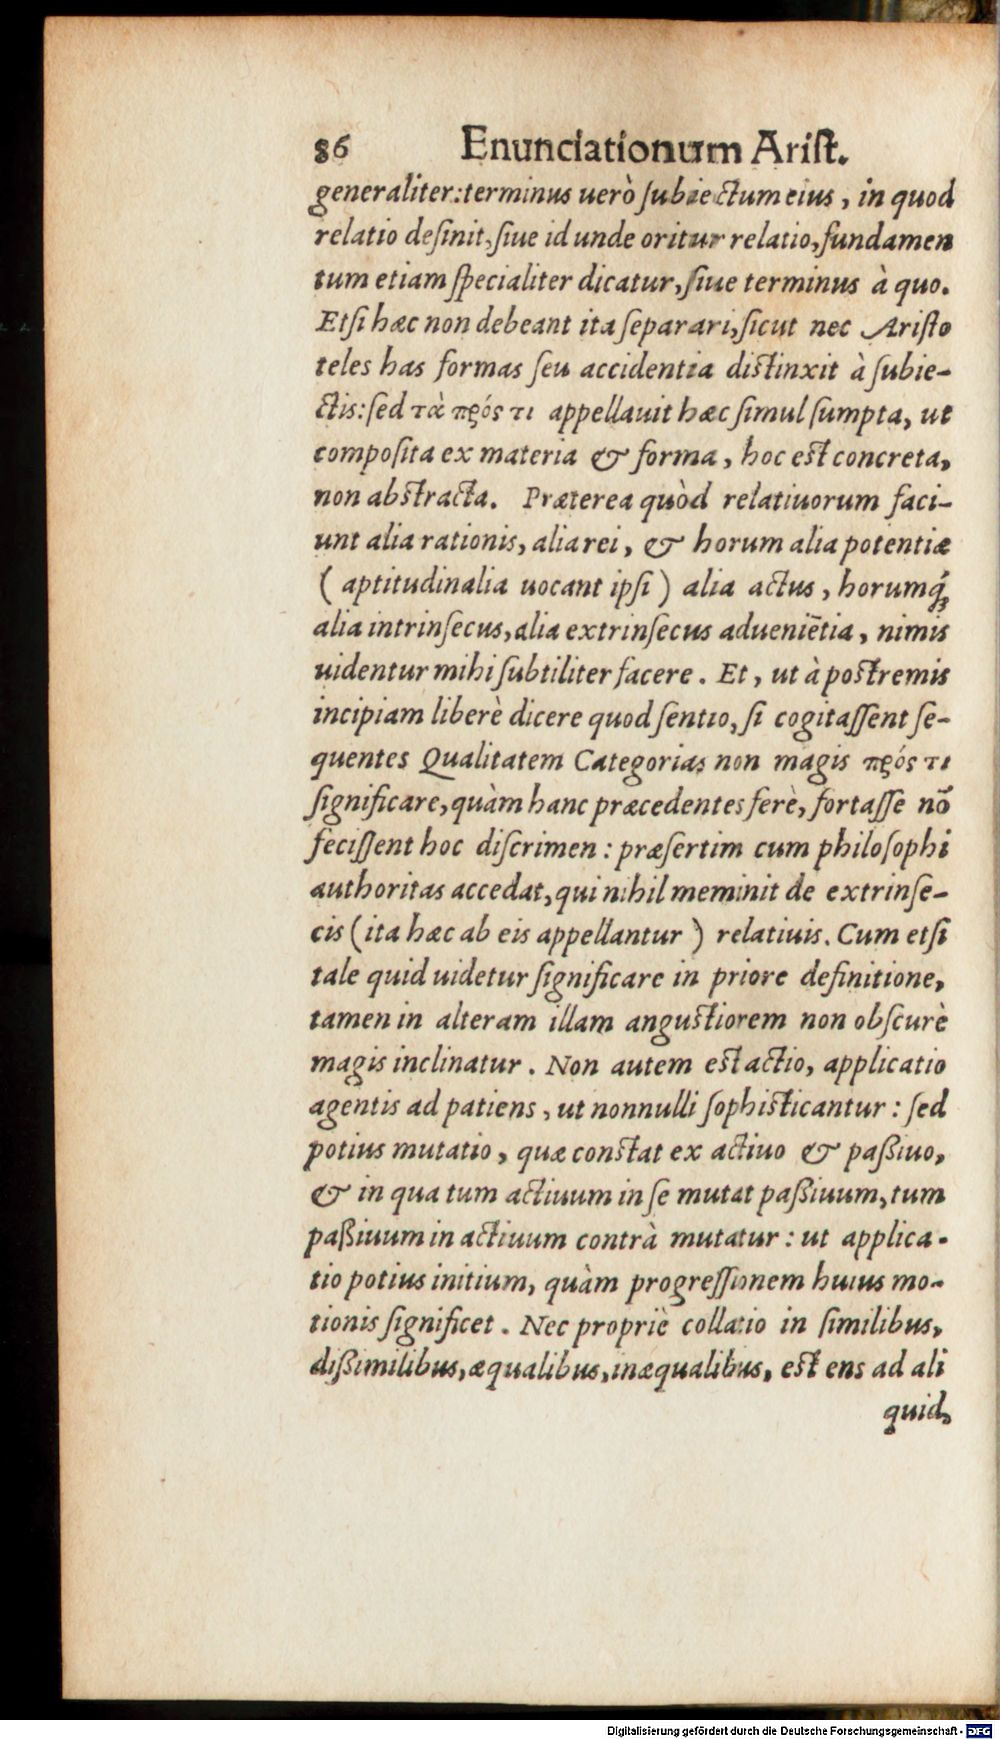 86 Enunciationum Arist.
generaliter: terminus uerò subiectum eius, in quod
relatio desinit, siue id unde oritur relatio, fundamen
tum etiam specialiter dicatur, siue terminus à quo.
Etsi hæc non debeant ita separari, sicut nec Aristo
teles has formas seu accidentia distinxit à subie-
ctis: sed τὰ πρός τι appellauit hæc simul sumpta, ut
composita ex materia & forma, hoc est concreta,
non abstracta. Præterea quòd relatiuorum faci-
unt alia rationis, alia rei, & horum alia potentiæ
( aptitudinalia uocant ipsi ) alia actus, horumq́;
alia intrinsecus, alia extrinsecus adueniētia, nimis
uidentur mihi subtiliter facere. Et, ut à postremis
incipiam liberè dicere quod sentio, si cogitassent se-
quentes Qualitatem Categorias non magis πρός τι
significare, quàm hanc præcedentes ferè, fortasse nō
fecissent hoc discrimen: præsertim cum philosophi
authoritas accedat, qui nihil meminit de extrinse-
cis ( ita hæc ab eis appellantur ) relatiuis. Cum etsi
tale quid uidetur significare in priore definitione,
tamen in alteram illam angustiorem non obscurè
magis inclinatur. Non autem est actio, applicatio
agentis ad patiens, ut nonnulli sophisticantur: sed
potius mutatio, quæ constat ex actiuo & paßiuo,
& in qua tum actiuum in se mutat paßiuum, tum
paßiuum in actiuum contrà mutatur: ut applica-
tio potius initium, quàm progressionem huius mo-
tionis significet. Nec propriè collatio in similibus,
dißimilibus, æqualibus, inæqualibus, est ens ad ali
quid,
Digitalisierung gefördert durch die Deutsche Forschungsgemeinschaft - DFG